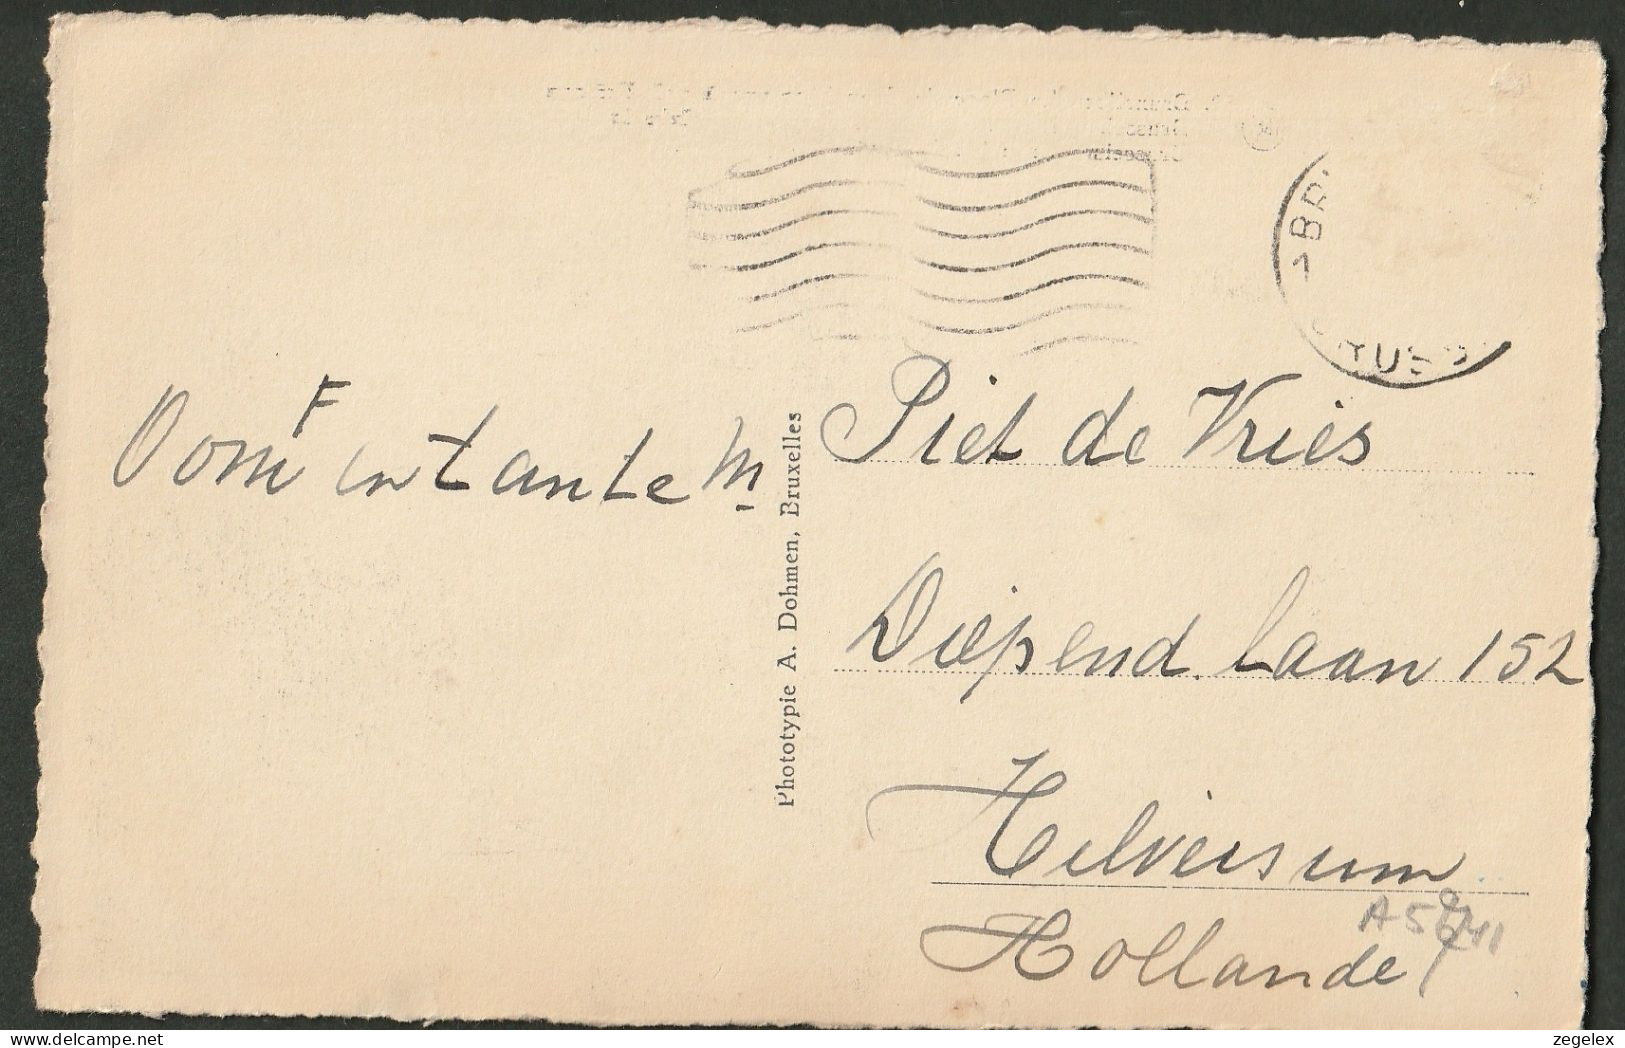 Oom F en tante M
Phototypie A. Dohmen, Bruxelles
Piet de Vries
Diepend. laan 152
Hilversum
Hollande
zegelex